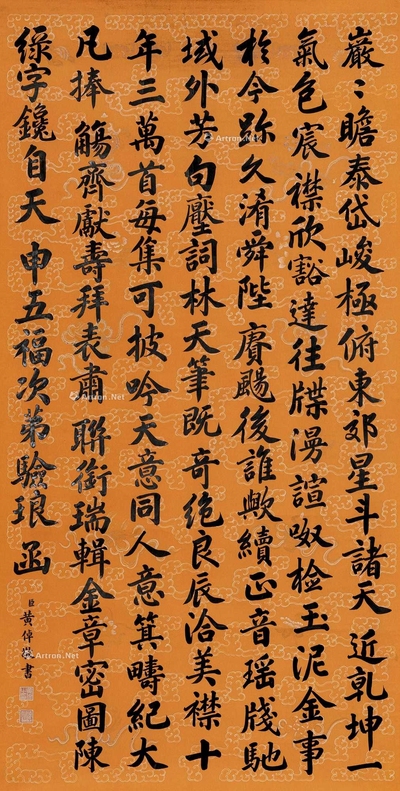 巖〻瞻泰岱峻極俯東郊星斗諸天近乾坤一
氣色宸襟欣豁達往牒漫諠呶检玉泥金事
於今跡久淆舜陛賡颺後誰歟續正音瑶牋馳
域外芳句壓詞林天筆既奇絶良辰洽美襟十
年三萬首每集可披吟天意同人意箕疇紀大
凡捧觴齊獻壽拜表肅聯銜瑞輯金章密圖陳
綠字鑱自天申五福次第驗琅函
臣黄倬書
Artron.Net
Artron.Net
Artron.Net
Artron.Net